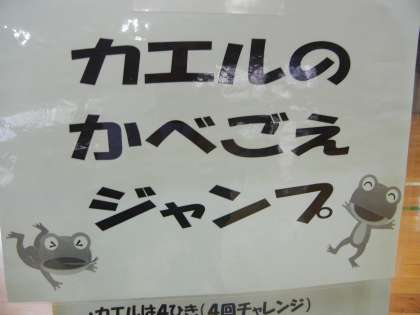 カエルの
かべごえ
ジャンプ
・カエルは4ひき(4回チャレンジ)